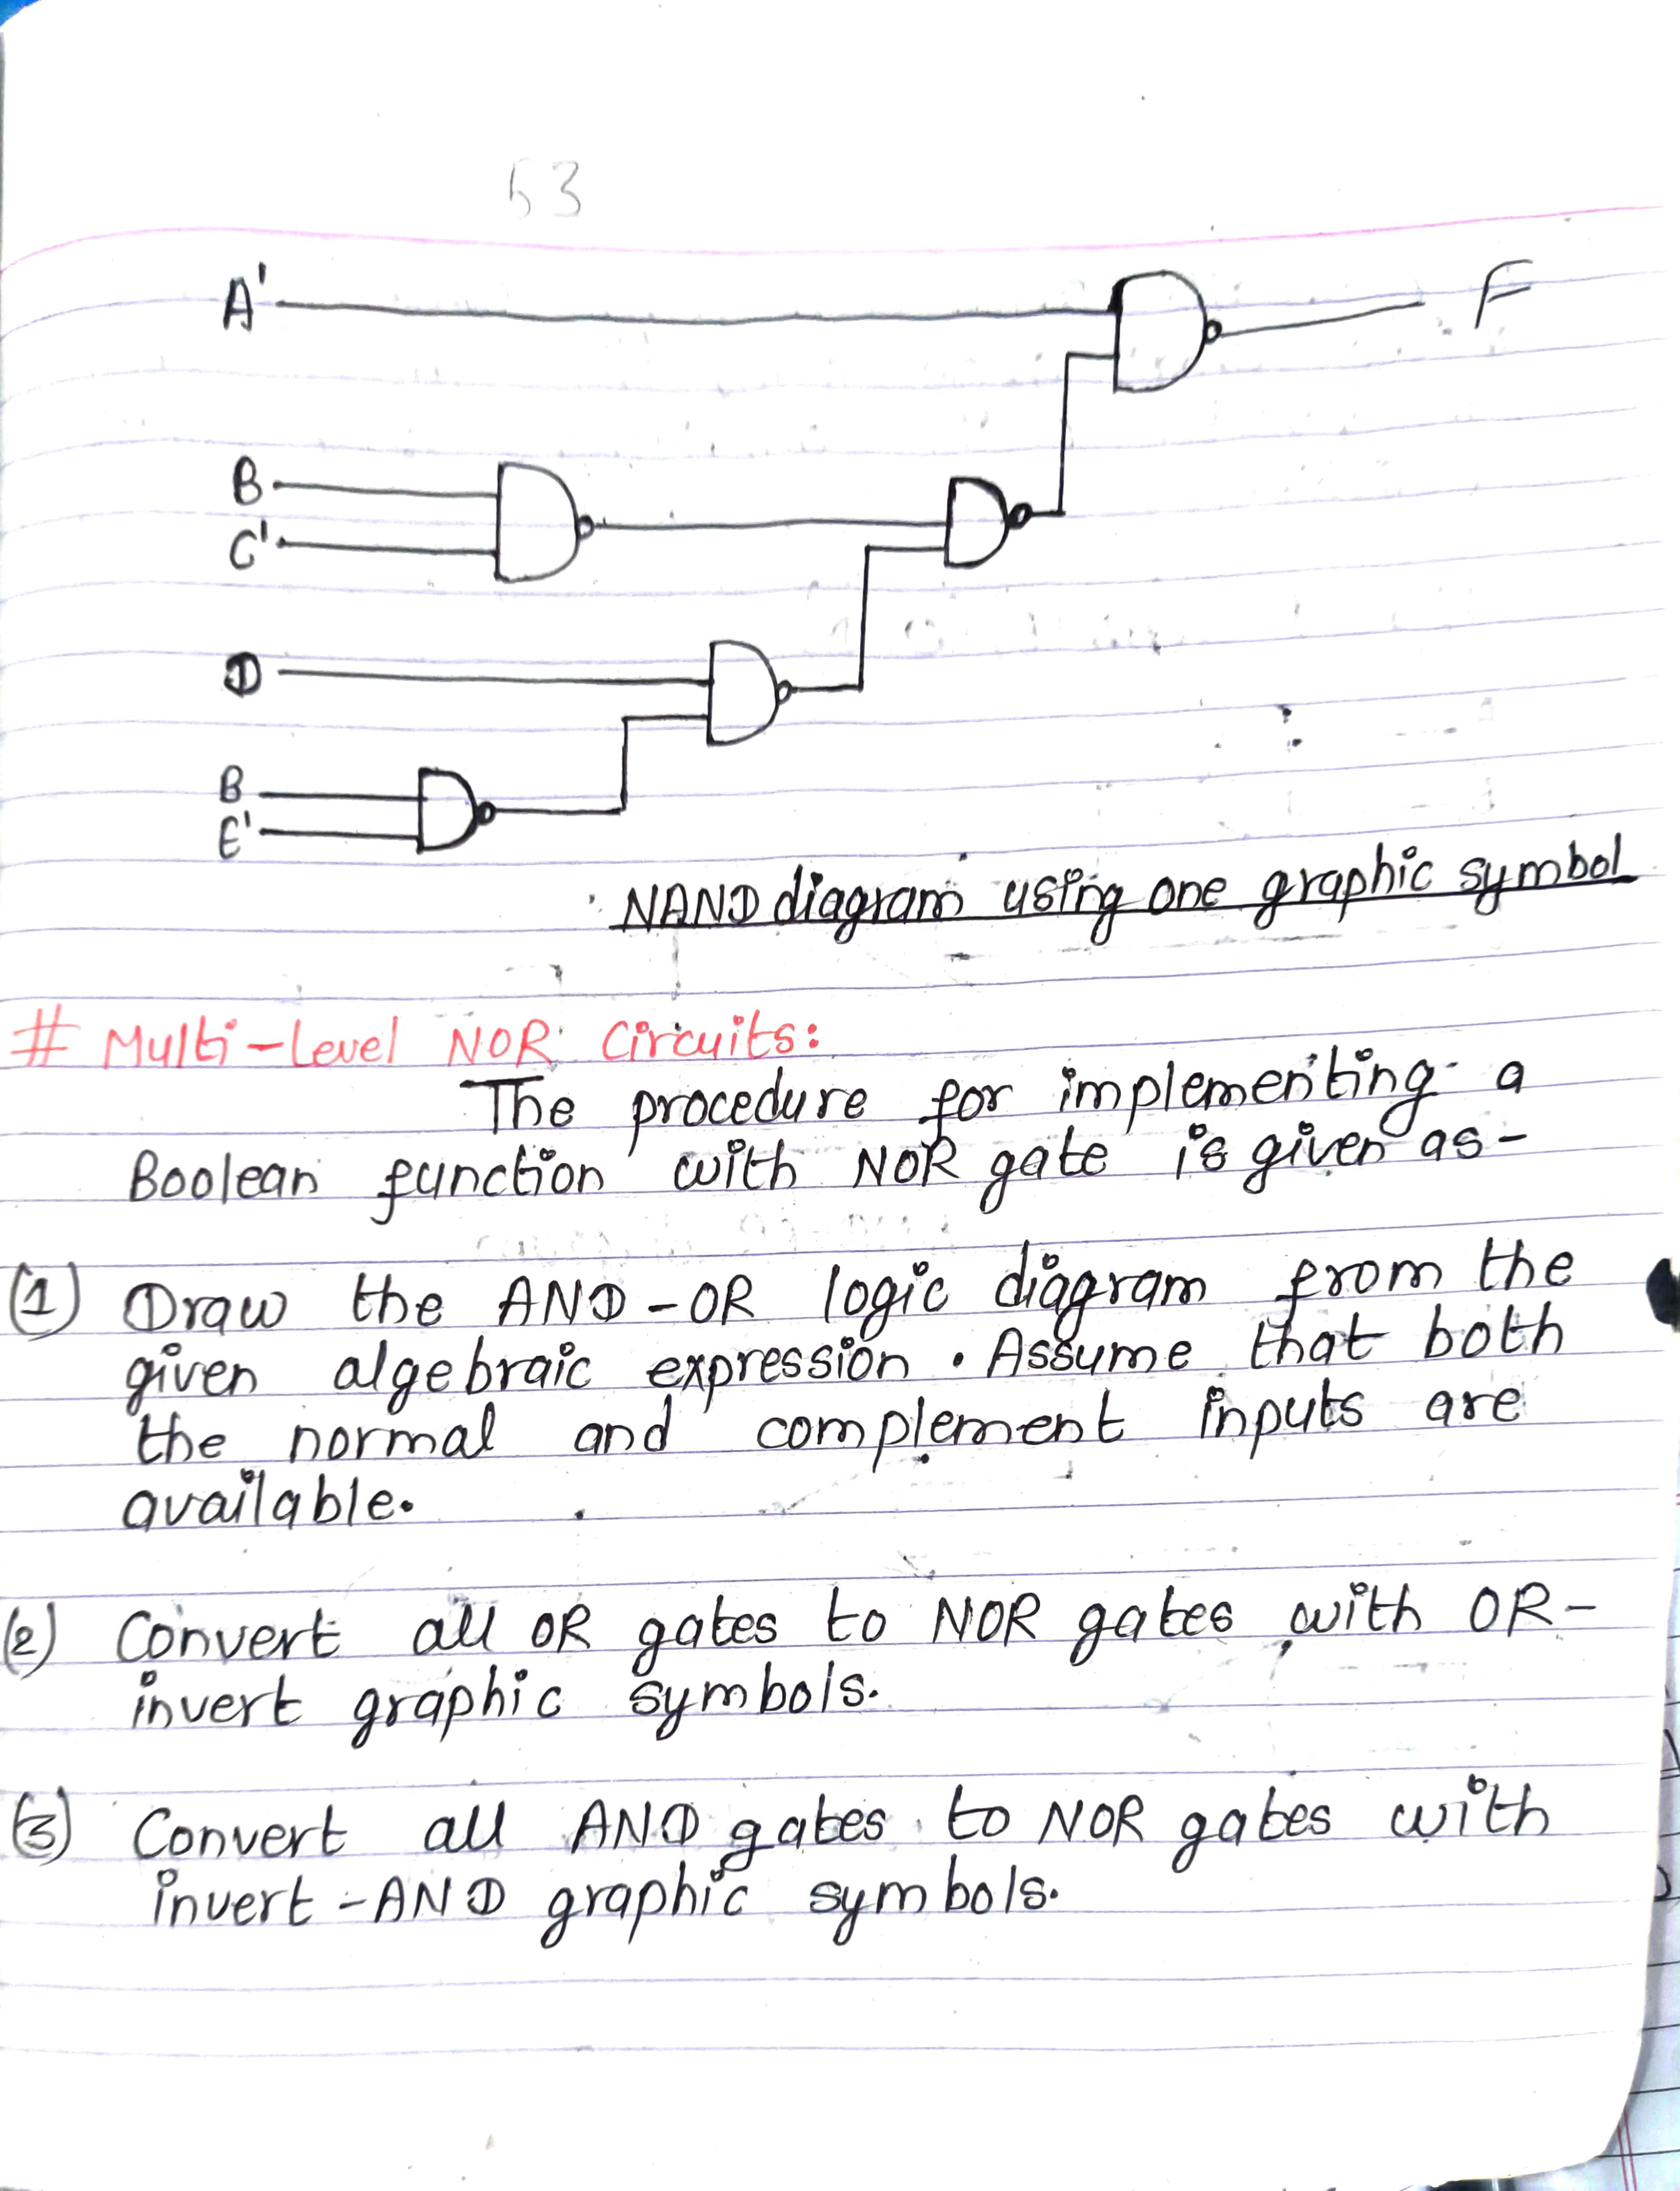 53
A'
F
B
C'
D
B
E'
NAND diagram using one graphic symbol
# Multi-Level NOR Circuits:
The procedure for implementing a
Boolean function with NOR gate is given as-
(1) Draw the AND-OR logic diagram from the
given algebraic expression. Assume that both
the normal and complement inputs are
available.
(2) Convert all OR gates to NOR gates with OR-
invert graphic symbols.
(3) Convert all AND gates to NOR gates with
invert-AND graphic symbols.